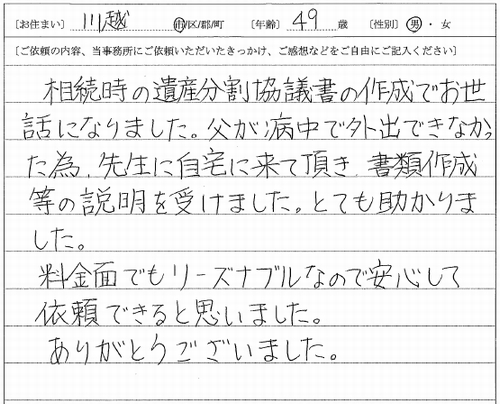 ［お住まい］ 川越 市/区/郡/町 ［年齢］ 49 歳 ［性別］ 男 ・ 女
［ご依頼の内容、当事務所にご依頼いただいたきっかけ、ご感想などをご自由にご記入ください］
相続時の遺産分割協議書の作成でお世
話になりました。父が病中で外出できなかっ
た為、先生に自宅に来て頂き 書類作成
等の説明を受けました。とても助かりま
した。
料金面でもリーズナブルなので安心して
依頼できると思いました。
ありがとうございました。